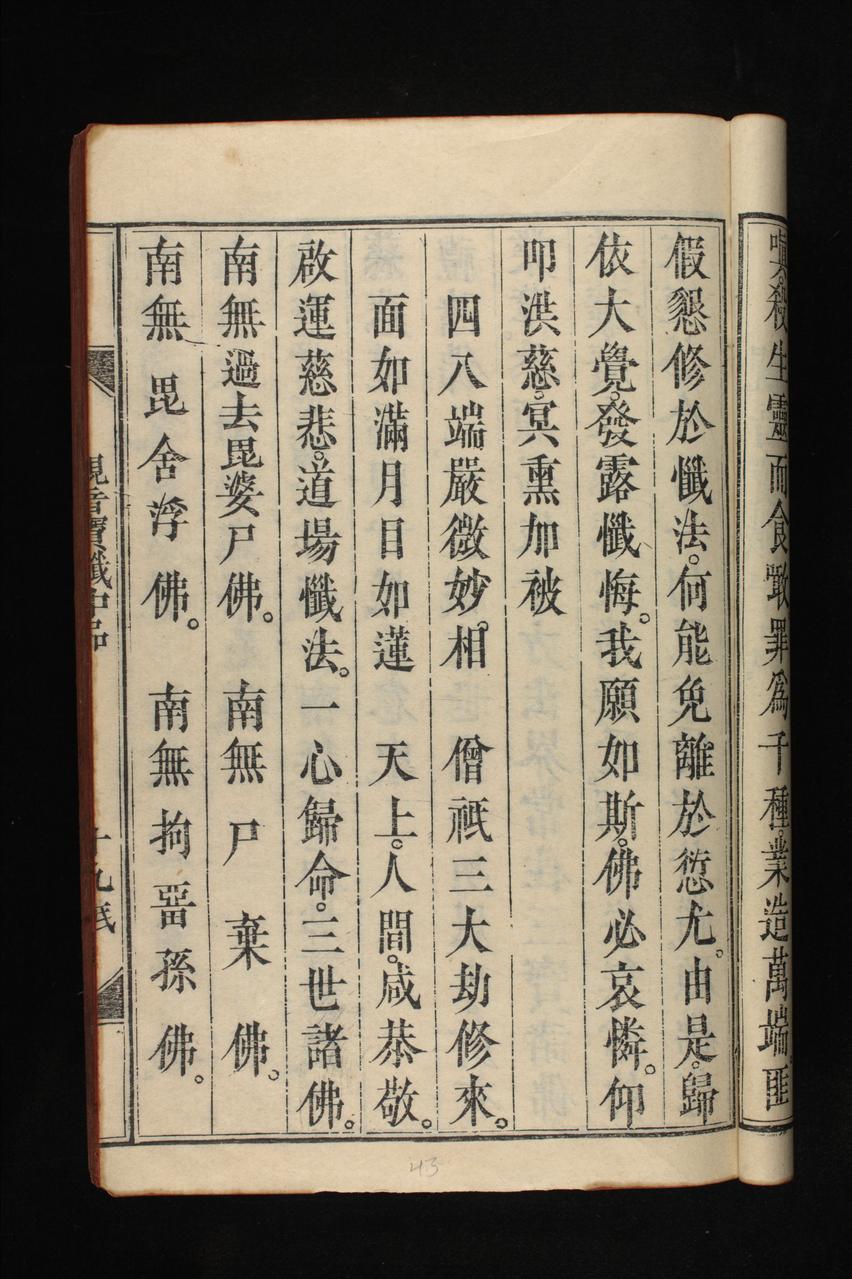 嗔殺生靈而食噉罪爲千種。業造萬端匪
假懇修於懺法。何能免離於愆尤。由是。歸
依大覺。發露懺悔。我願如斯。佛必哀憐。仰
叩洪慈。冥熏加被
四八端嚴微妙。相　僧祇三大劫修來。
面如滿月目如蓮　天上。人間。咸恭敬。
啟運慈悲。道場懺法。一心歸命。三世諸佛。
南無過去毘婆尸佛。　南無尸棄佛。
南無毘舍浮佛。　南無拘畱孫佛。
觀音寶懺中品　十九
43